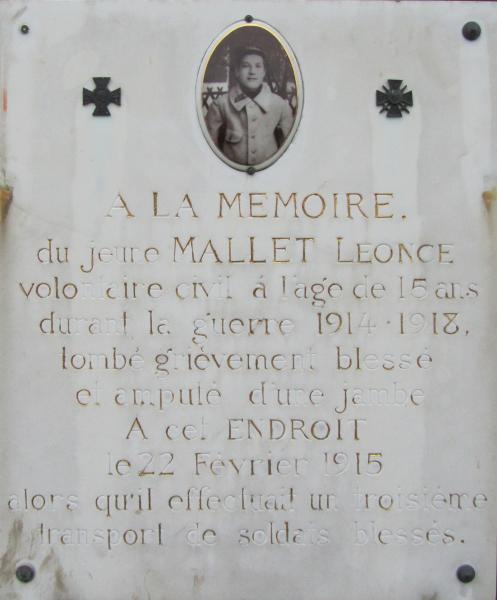 A LA MEMOIRE.
du jeune MALLET LEONCE
volontaire civil á l'age de 15 ans
durant la guerre 1914-1918,
tombé grièvement blessé
et amputé d'une jambe
A cet ENDROIT
le 22 Février 1915
alors qu'il effectuait un troisième
transport de soldats blessés.